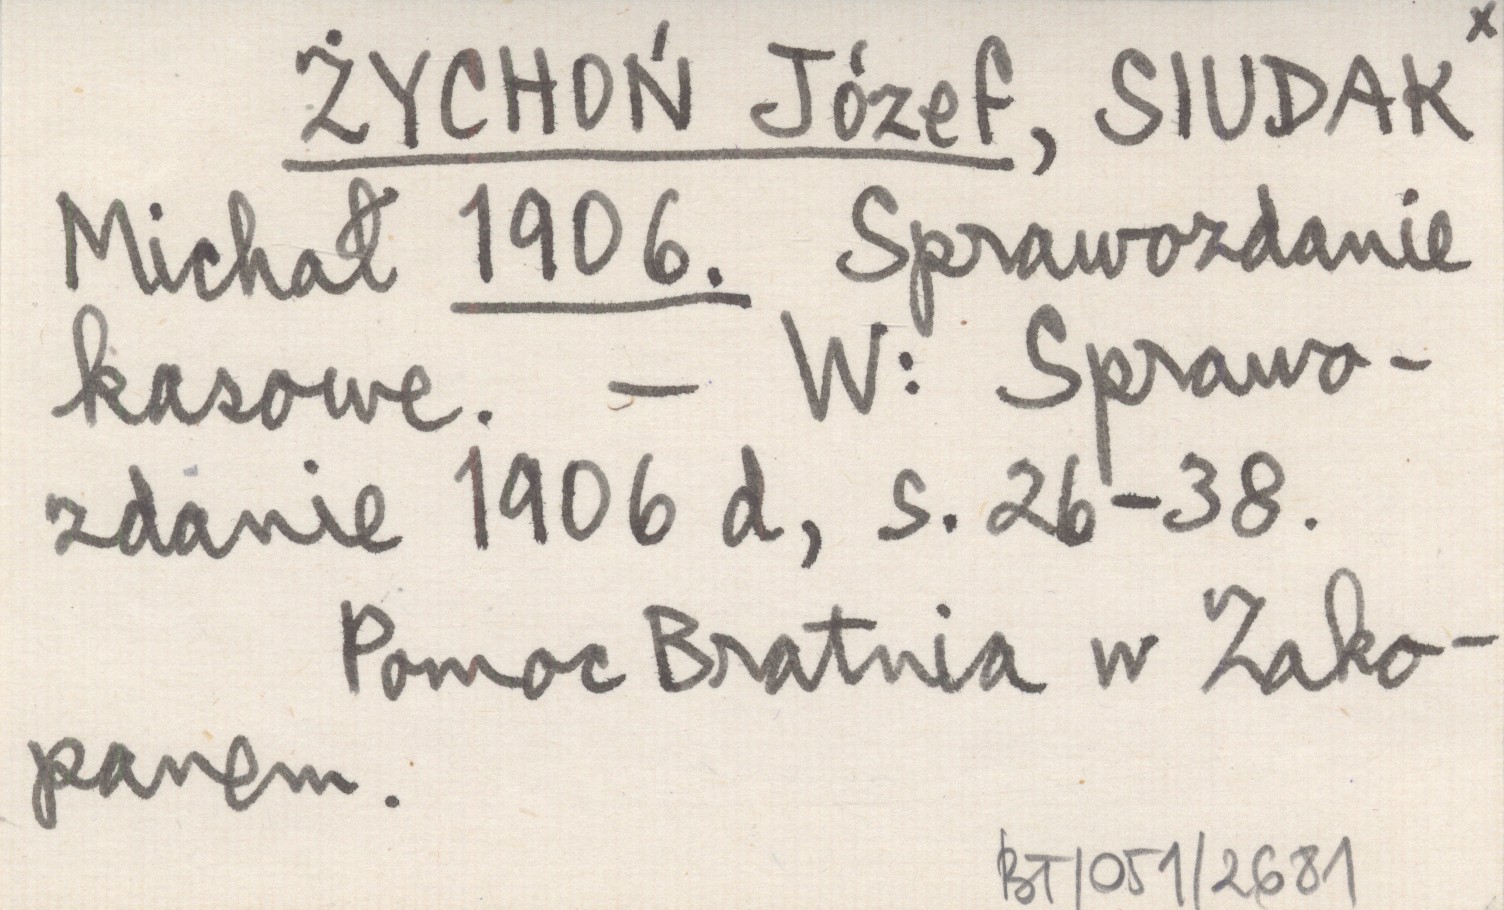 ŻYCHOŃ Józef, SIUDAK x
Michał 1906. Sprawozdanie
kasowe. – W: Sprawo-
zdanie 1906 d, s. 26–38.
Pomoc Bratnia w Zako-
panem.
BT/051/2681